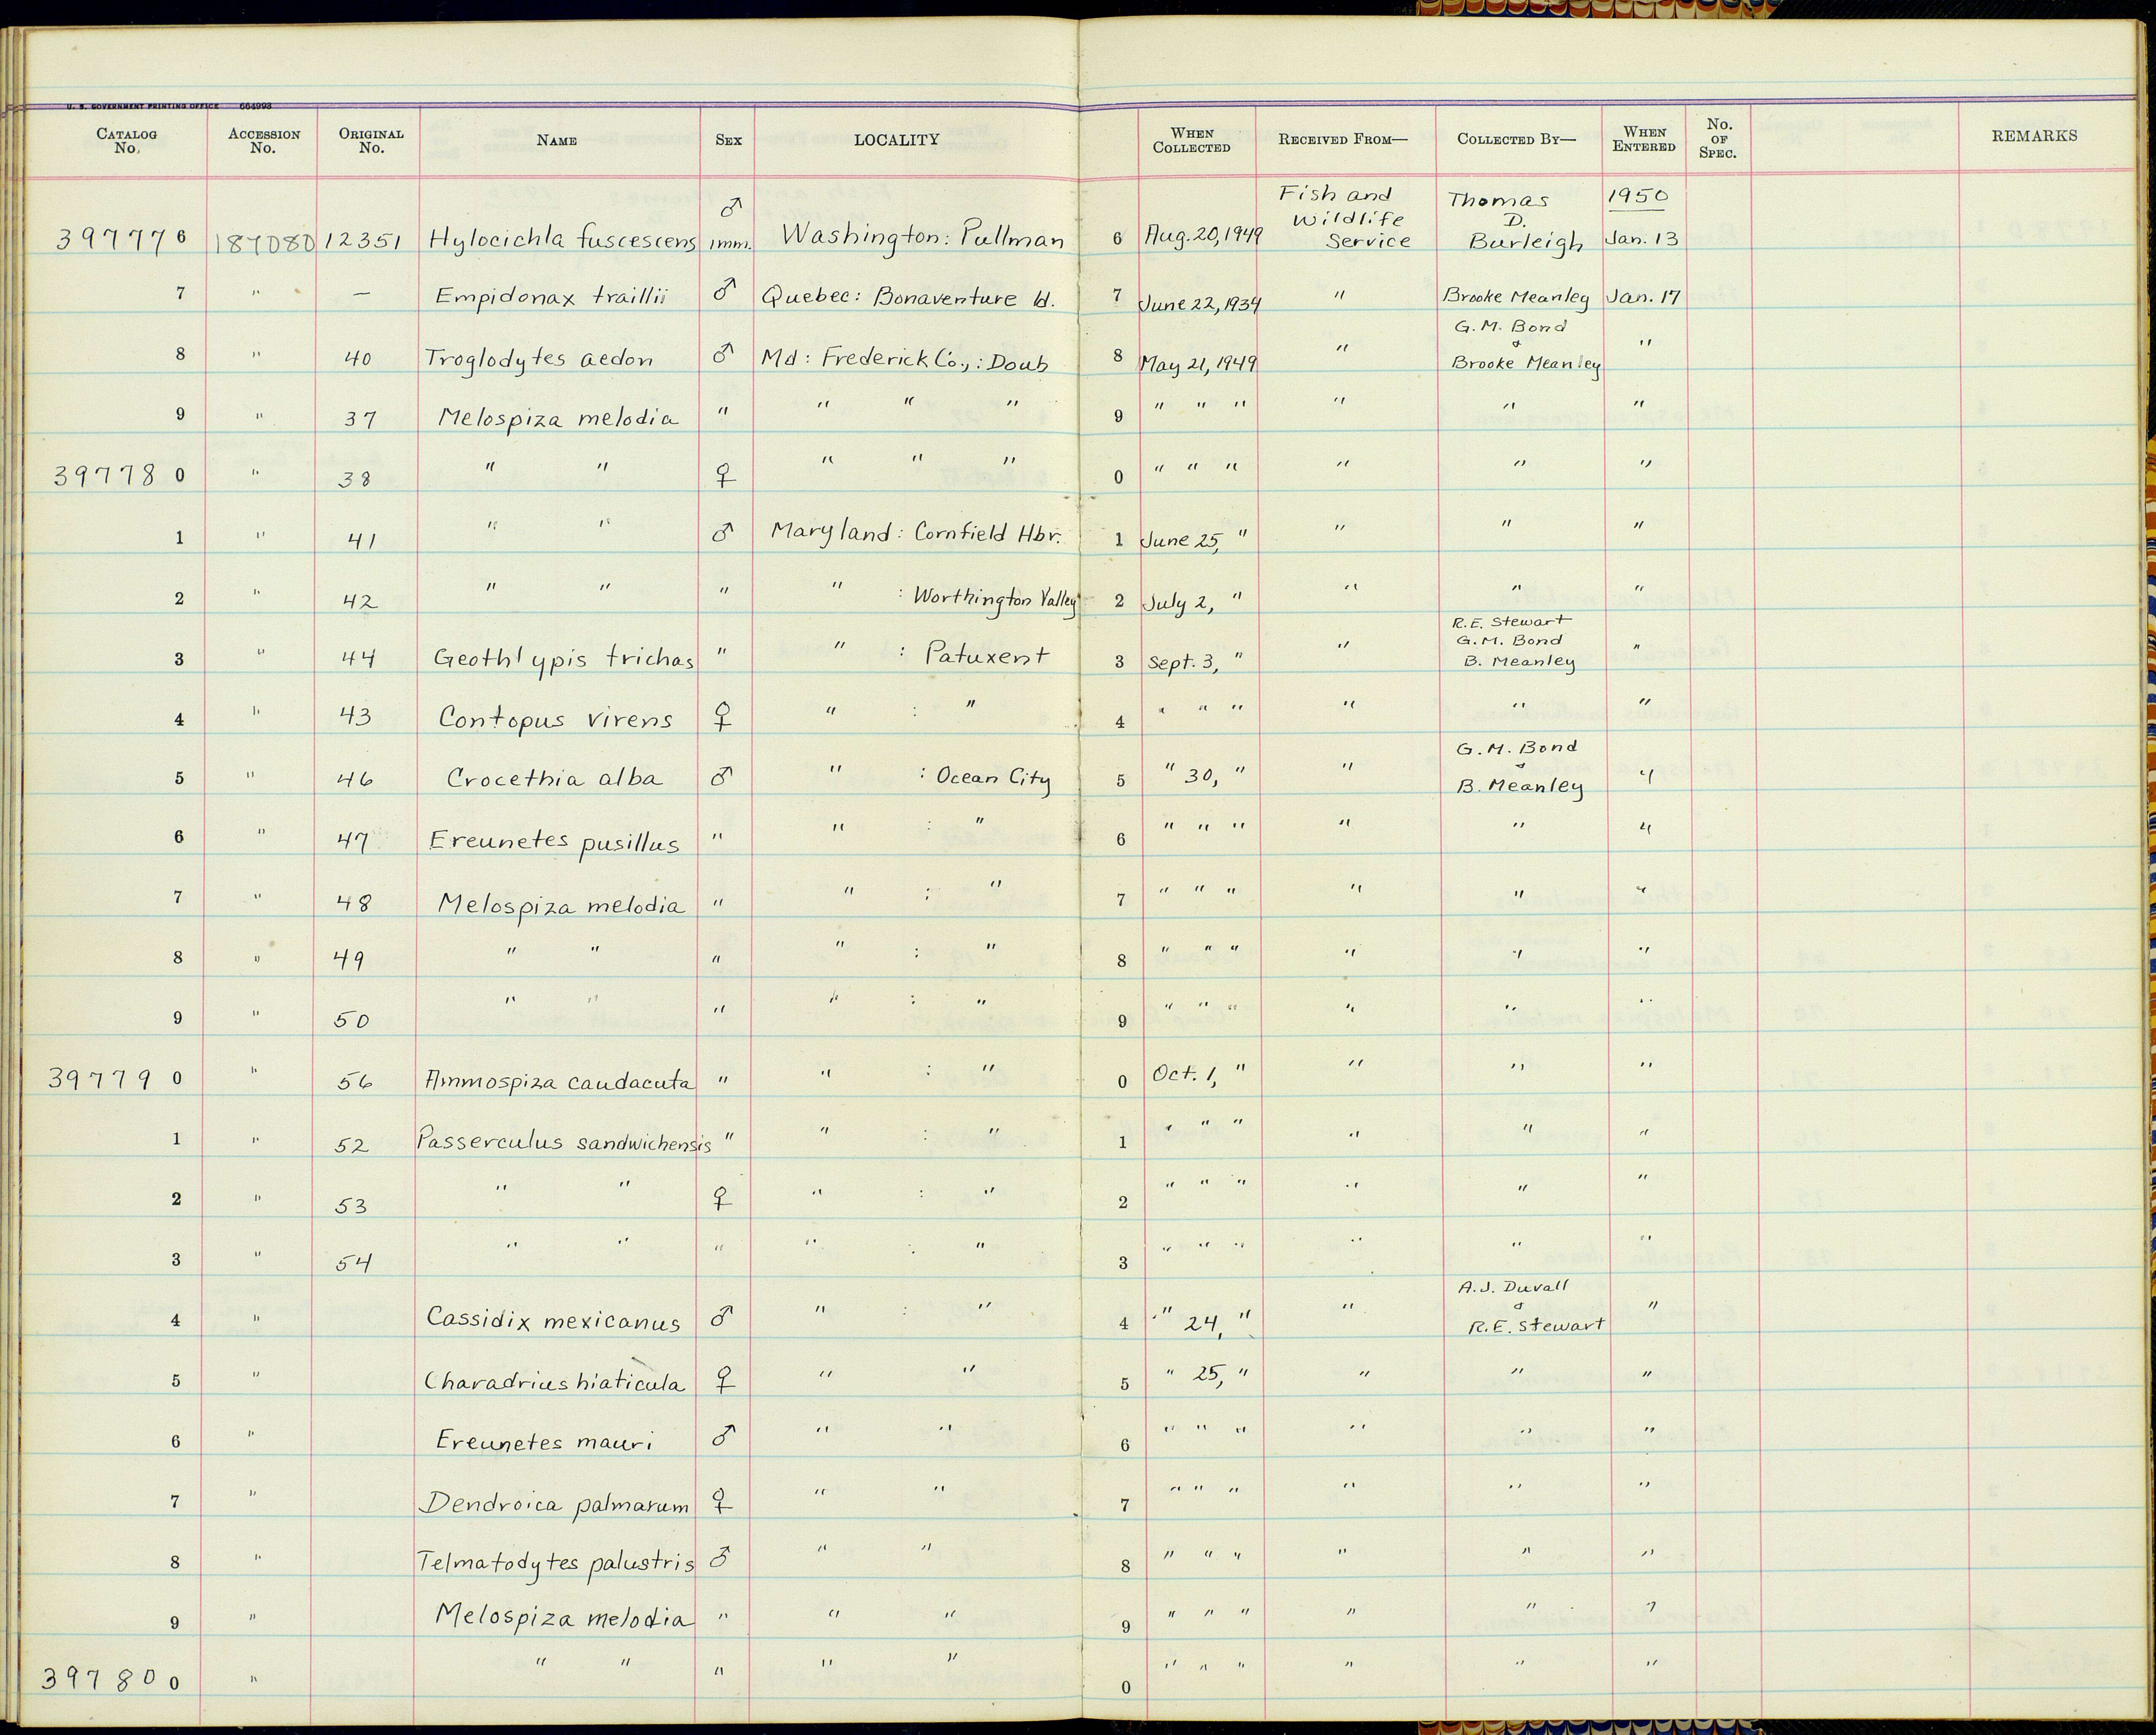 U. S. GOVERNMENT PRINTING OFFICE 664993
CATALOG No. ACCESSION No. ORIGINAL No. NAME SEX LOCALITY WHEN COLLECTED RECEIVED FROM— COLLECTED BY— WHEN ENTERED No. OF SPEC. REMARKS
397776 187080 12351 Hylocichla fuscescens ♂ imm. Washington: Pullman 6 Aug. 20, 1949 Fish and Wildlife Service Thomas D. Burleigh 1950 Jan. 13
7 " — Empidonax traillii ♂ Quebec: Bonaventure Id. 7 June 22, 1934 " Brooke Meanley Jan. 17
8 " 40 Troglodytes aedon ♂ Md: Frederick Co.,: Doub 8 May 21, 1949 " G. M. Bond & Brooke Meanley "
9 " 37 Melospiza melodia " " " " 9 " " " " " "
397780 " 38 " " ♀ " " " 0 " " " " " "
1 " 41 " " ♂ Maryland: Cornfield Hbr. 1 June 25, " " " "
2 " 42 " " " " : Worthington Valley 2 July 2, " " " "
3 " 44 Geothlypis trichas " " : Patuxent 3 Sept. 3, " " R.E. Stewart G.M. Bond B. Meanley "
4 " 43 Contopus virens ♀ " : " 4 " " " " " "
5 " 46 Crocethia alba ♂ " : Ocean City 5 " 30, " " G.M. Bond & B. Meanley "
6 " 47 Ereunetes pusillus " " : " 6 " " " " " "
7 " 48 Melospiza melodia " " : " 7 " " " " " "
8 " 49 " " " " : " 8 " " " " " "
9 " 50 " " " " : " 9 " " " " " "
397790 " 56 Ammospiza caudacuta " " : " 0 Oct. 1, " " " "
1 " 52 Passerculus sandwichensis " " : " 1 " " " " " "
2 " 53 " " ♀ " : " 2 " " " " " "
3 " 54 " " " " : " 3 " " " " " "
4 " Cassidix mexicanus ♂ " : " 4 " 24, " " A.J. Duvall & R.E. Stewart "
5 " Charadrius hiaticula ♀ " " 5 " 25, " " " "
6 " Ereunetes mauri ♂ " " 6 " " " " " "
7 " Dendroica palmarum ♀ " " 7 " " " " " "
8 " Telmatodytes palustris ♂ " " 8 " " " " " "
9 " Melospiza melodia " " " 9 " " " " " "
397800 " " " " " " 0 " " " " " "